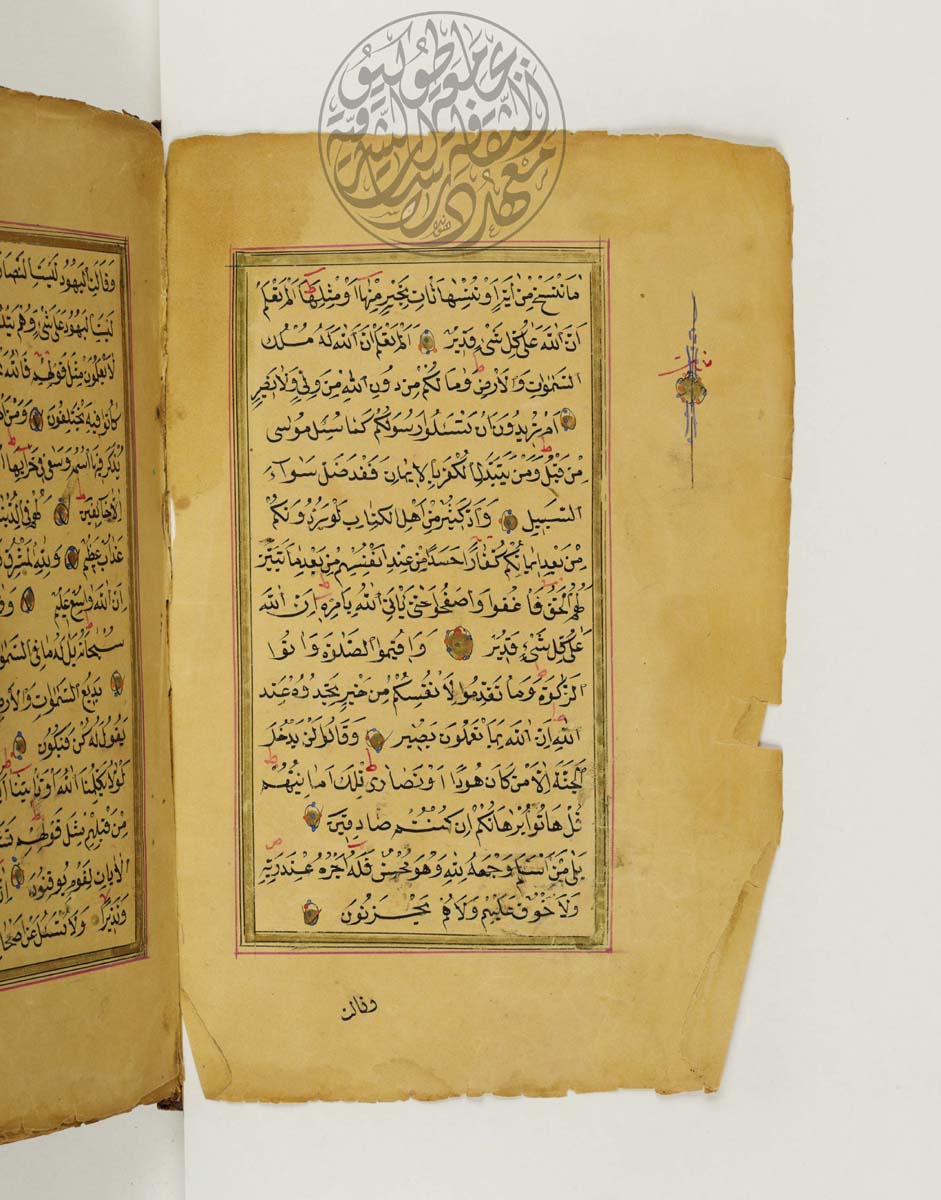 مَا نَنْسَخْ مِنْ اٰيَةٍ اَوْ نُنْسِهَا نَاْتِ بِخَيْرٍ مِنْهَا اَوْ مِثْلِهَا اَلَمْ تَعْلَمْ
اَنَّ اللّٰهَ عَلٰى كُلِّ شَىْءٍ قَدِيرٌ اَلَمْ تَعْلَمْ اَنَّ اللّٰهَ لَهُ مُلْكُ
السَّمٰوَاتِ وَالْاَرْضِ وَمَا لَكُمْ مِنْ دُونِ اللّٰهِ مِنْ وَلِىٍّ وَلَا نَصِيرٍ
اَمْ تُرِيدُونَ اَنْ تَسْـَٔلُوا رَسُولَكُمْ كَمَا سُئِلَ مُوسٰى
مِنْ قَبْلُ وَمَنْ يَتَبَدَّلِ الْكُفْرَ بِالْاِيمَانِ فَقَدْ ضَلَّ سَوَاءَ
السَّبِيلِ وَدَّ كَثِيرٌ مِنْ اَهْلِ الْكِتَابِ لَوْ يَرُدُّونَكُمْ
مِنْ بَعْدِ اِيمَانِكُمْ كُفَّارًا حَسَدًا مِنْ عِنْدِ اَنْفُسِهِمْ مِنْ بَعْدِ مَا تَبَيَّنَ
لَهُمُ الْحَقُّ فَاعْفُوا وَاصْفَحُوا حَتّٰى يَاْتِىَ اللّٰهُ بِاَمْرِهِ اِنَّ اللّٰهَ
عَلٰى كُلِّ شَىْءٍ قَدِيرٌ وَاَقِيمُوا الصَّلٰوةَ وَاٰتُوا
الزَّكٰوةَ وَمَا تُقَدِّمُوا لِاَنْفُسِكُمْ مِنْ خَيْرٍ تَجِدُوهُ عِنْدَ
اللّٰهِ اِنَّ اللّٰهَ بِمَا تَعْمَلُونَ بَصِيرٌ وَقَالُوا لَنْ يَدْخُلَ
الْجَنَّةَ اِلَّا مَنْ كَانَ هُودًا اَوْ نَصَارٰى تِلْكَ اَمَانِيُّهُمْ
قُلْ هَاتُوا بُرْهَانَكُمْ اِنْ كُنْتُمْ صَادِقِينَ
بَلٰى مَنْ اَسْلَمَ وَجْهَهُ لِلّٰهِ وَهُوَ مُحْسِنٌ فَلَهُ اَجْرُهُ عِنْدَ رَبِّهِ
وَلَا خَوْفٌ عَلَيْهِمْ وَلَا هُمْ يَحْزَنُونَ
وقالت
وَقَالَتِ الْيَهُودُ لَيْسَتِ النَّصَارَ
لَيْسَتِ الْيَهُودُ عَلٰى شَىْءٍ وَهُمْ يَتْلُ
لَا يَعْلَمُونَ مِثْلَ قَوْلِهِمْ فَاللّٰهُ
كَانُوا فِيهِ يَخْتَلِفُونَ وَمَنْ
يُذْكَرَ فِيهَا اسْمُهُ وَسَعٰى فِى خَرَابِهَا
اِلَّا خَائِفِينَ لَهُمْ فِى الدُّنْيَ
عَذَابٌ عَظِيمٌ وَلِلّٰهِ الْمَشْرِقُ
اِنَّ اللّٰهَ وَاسِعٌ عَلِيمٌ وَقَ
سُبْحَانَهُ بَلْ لَهُ مَا فِى السَّمٰوَ
بَدِيعُ السَّمٰوَاتِ وَالْاَرْضِ
يَقُولُ لَهُ كُنْ فَيَكُونُ
لَوْلَا يُكَلِّمُنَا اللّٰهُ اَوْ تَاْتِينَا
مِنْ قَبْلِهِمْ مِثْلَ قَوْلِهِمْ
الْاٰيَاتِ لِقَوْمٍ يُوقِنُونَ
وَنَذِيرًا وَلَا تُسْـَٔلُ عَنْ اَصْحَا